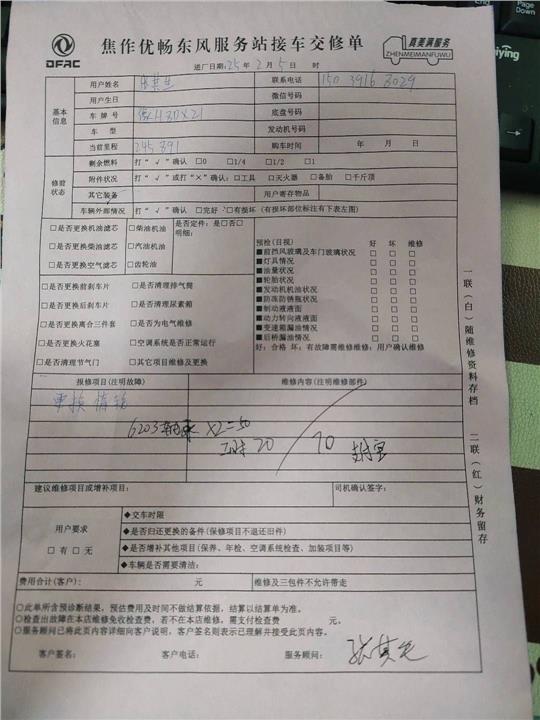 DFAC
焦作优畅东风服务站接车交修单
真美满服务
ZHENMEIMANFUWU
进厂日期:25年2月5日 时
基本信息
用户姓名 联系电话 150 3916 3029
用户生日 微信号码
车牌号 豫H3DX21 底盘号码
车型 发动机号码
当前里程 245391 购车时间 年 月 日
修前状态
剩余燃料 打“√”确认 □0 □1/4 □1/2 □1
附件状况 打“√”或打“×”确认:□工具 □灭火器 □备胎 □千斤顶
其它装备 用户寄存物品
车辆外部情况 打“√”确认 □完好 □有损坏(有损坏部位标注有下表左图)
□是否更换机油滤芯 □柴油机油 是否定件:是□否□
□是否更换柴油滤芯 □汽油机油 明细:
□是否更换空气滤芯 □齿轮油
□是否更换前刹车片 □是否清理排气筒
□是否更换后刹车片 □是否清理尿素箱
□是否更换离合三件套 □是否为电气维修
□是否更换火花塞 □空调系统是否正常运行
□是否清理节气门 □其它项目维修及更换
预检(目视) 好 坏 维修
■前挡风玻璃及车门玻璃状况 □ □ □
■灯具情况 □ □ □
■油量状况 □ □ □
■轮胎状况 □ □ □
■发动机机油状况 □ □ □
■防冻防锈瓶状况 □ □ □
■制动液液面 □ □ □
■动力转向液液面 □ □ □
■变速箱漏油情况 □ □ □
■后桥漏油情况 □ □ □
好:合格 坏:有故障需维修维修:用户确认维修
报修项目(注明故障) 维修内容(注明维修部件)
更换惰轮
6203轴承 X2=50
工时 20 70
建议维修项目或增补项目: 司机确认签字:
用户要求
□有□无
◆交车时限
◆是否归还更换的备件(保修项目不退还旧件)
◆是否增补其他项目(保养、年检、空调系统检查、加装项目等)
◆车辆是否需要清洁:
费用合计(客户): 元 维修及三包件不允许带走
○此单所含预诊断结果,预估费用及时间不做结算依据,结算以结算单为准。
○检查出故障在本店维修免收检查费,若不在本店维修,需支付检查费 元。
○服务顾问已将此页内容详细向客户说明,客户签名则表示已理解并接受此页内容。
客户签名: 客户电话: 服务顾问:
一联(白)随维修资料存档 二联(红)财务留存